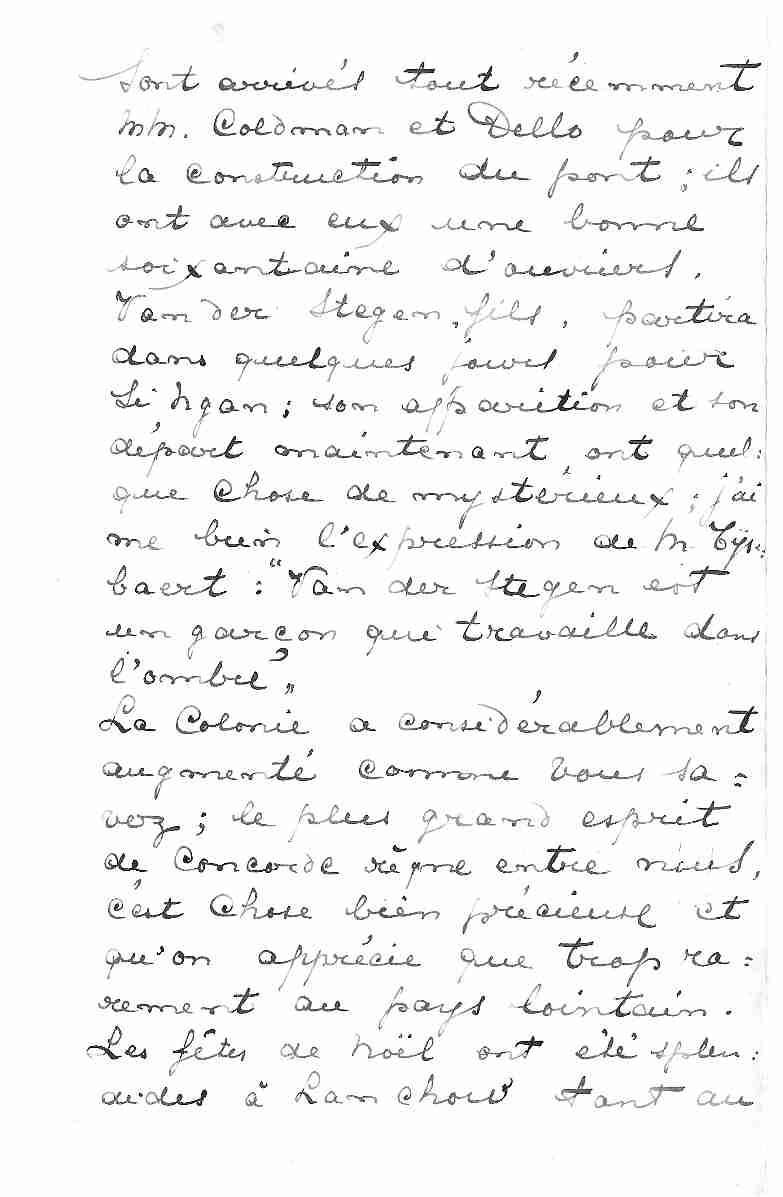 Sont arrivés tout récemment
MM. Coldman et Dello pour
la construction du pont ; ils
ont avec eux une bonne
soixantaine d'ouvriers.
Van der Stegen, fils, partira
dans quelques jours pour
Si Ngan ; son apparition et son
départ maintenant, ont quel:
que chose de mystérieux ; j'ai
me bien l'expression de M.
baert : "Van der Stegen est
un garçon qui travaille dans
l'ombre„
La Colonie a considérablement
augmenté comme vous sa=
vez ; le plus grand esprit
de Concorde règne entre nous,
c'est chose bien précieuse et
qu'on apprécie que trop ra=
rement au pays lointain.
Les fêtes de Noël ont été splen:
dides à Lanchow tant au